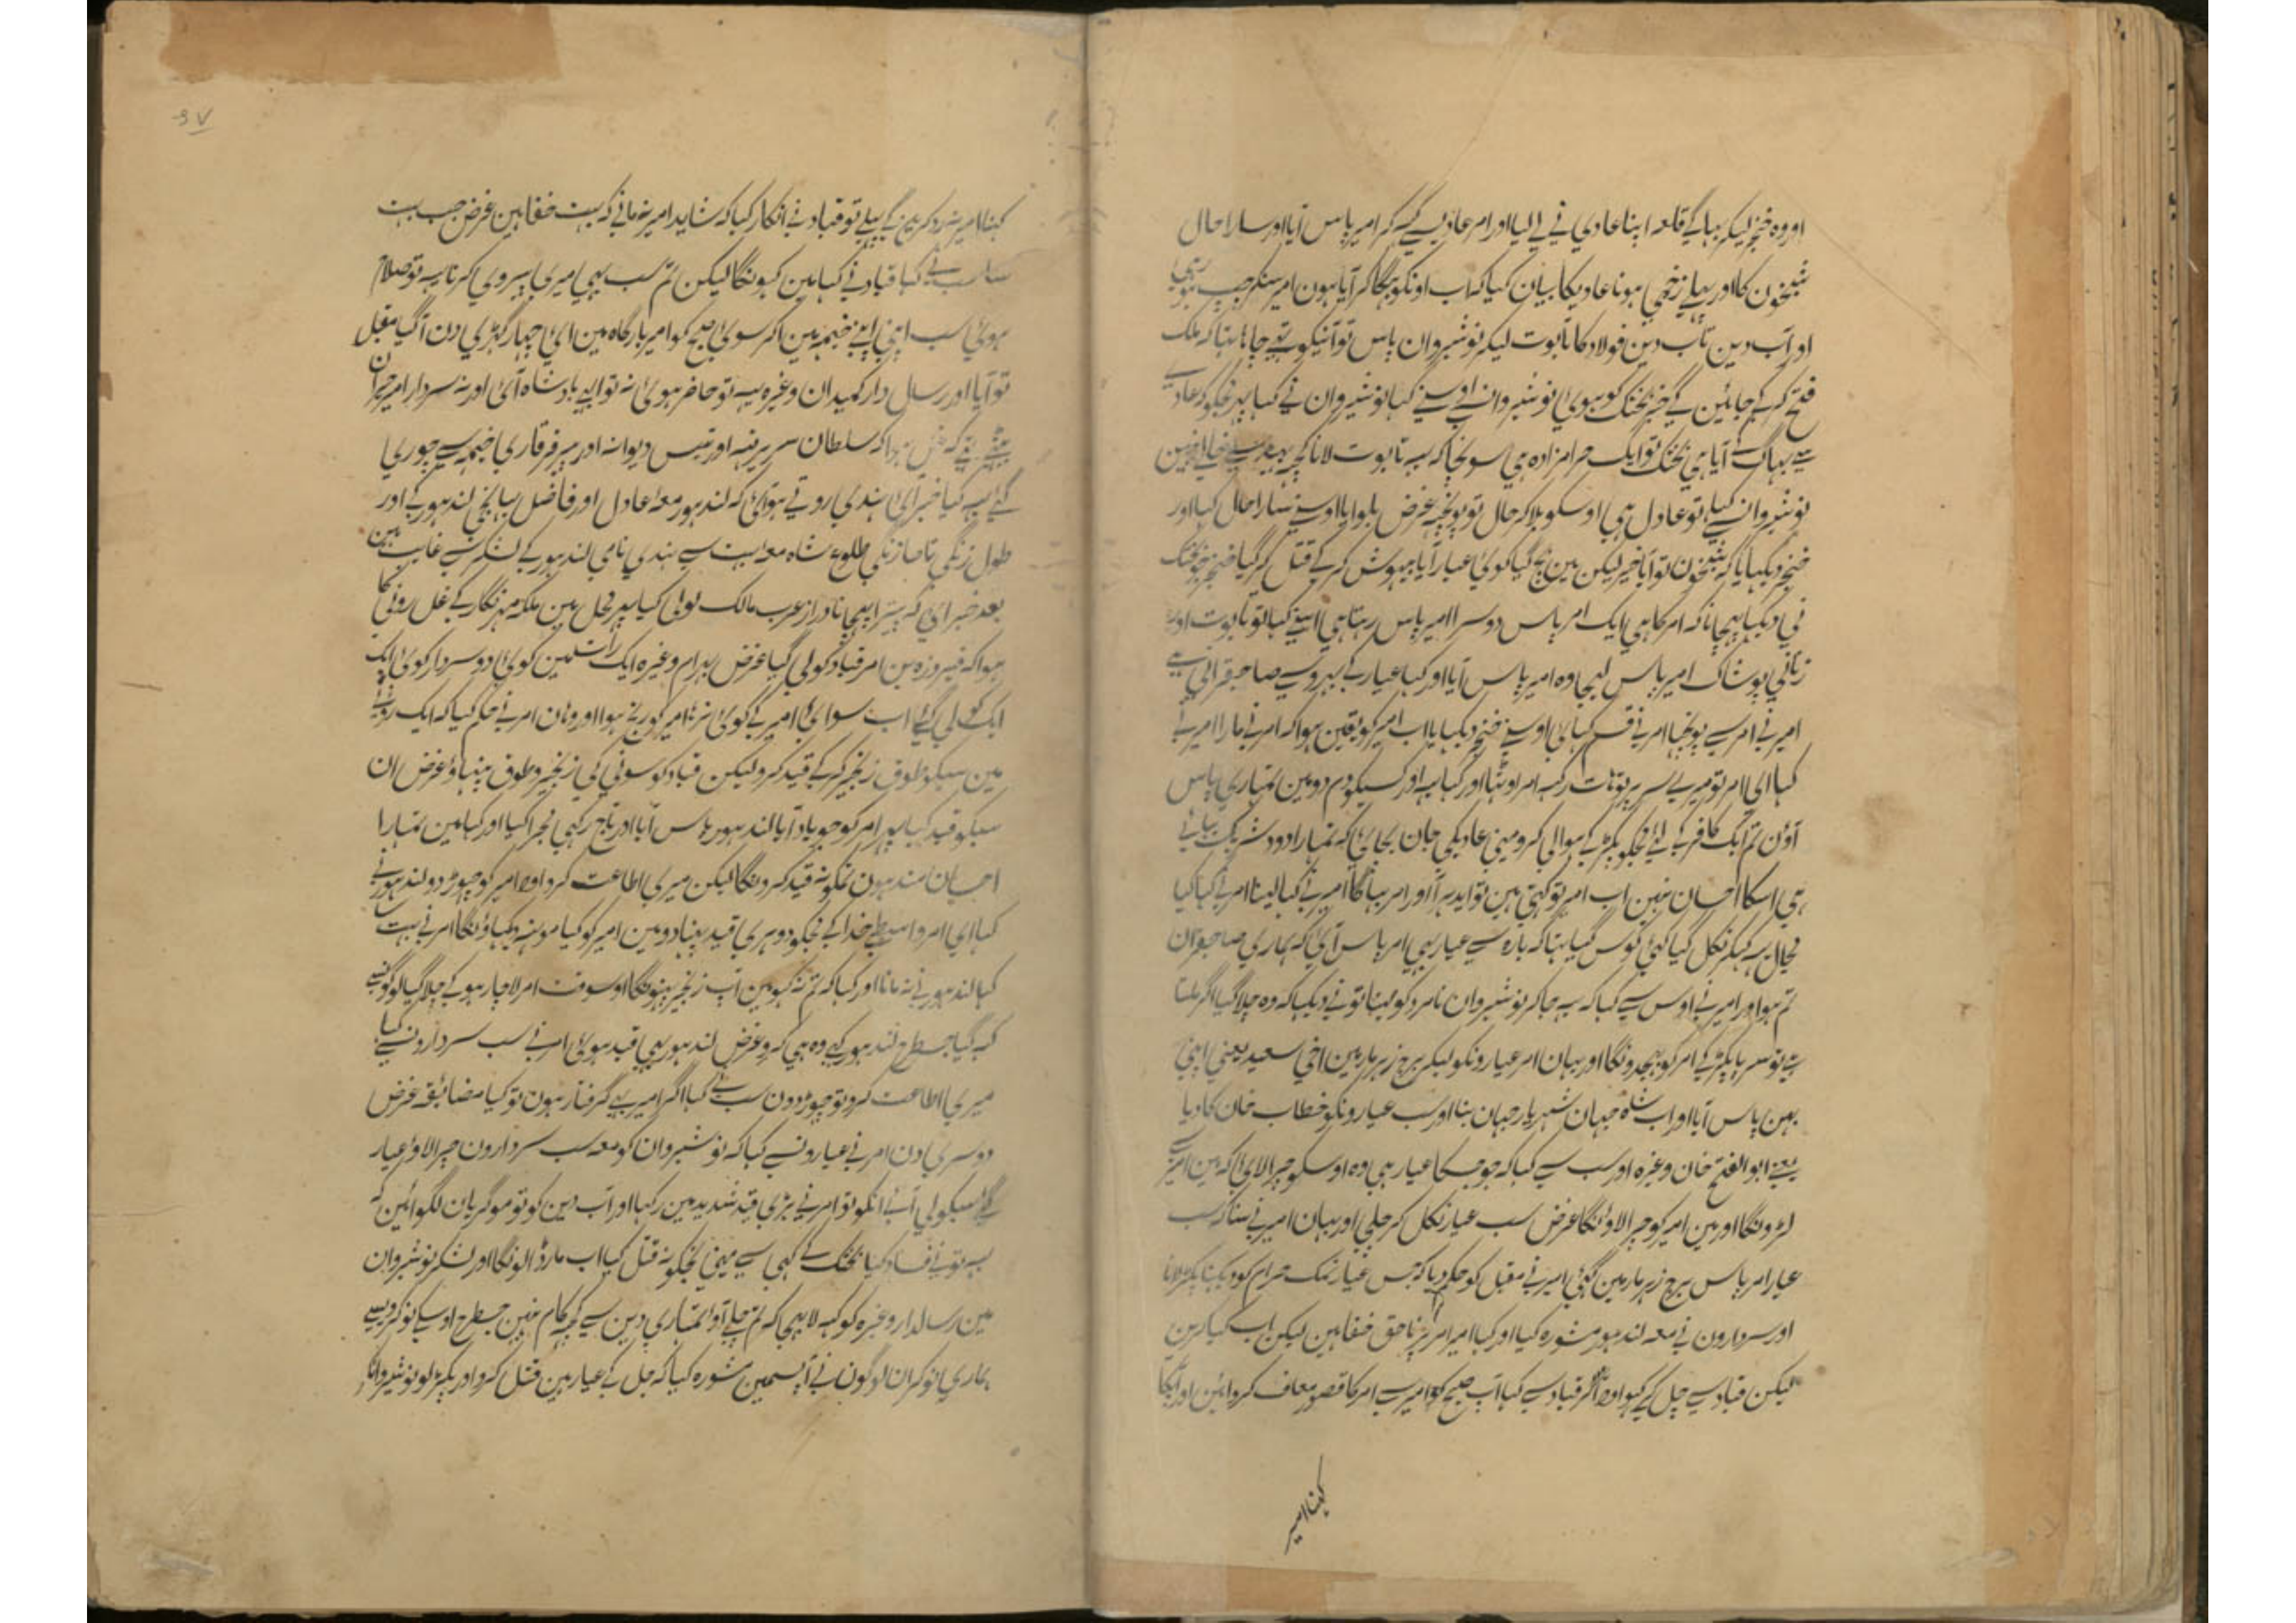 اور وہ خنجر لیکر بہاگے قلعہ اپنا عادی نے لے لیا اور امر عادیسے کہے کر امیر پاس آیا اور سارا حال
شبخون کا اور پہلے زخمی ہونا عادیکا بیان کیا کہ اب اونکو بہگا کر آیا ہون امیر سنکر چپ ہو رہی
اور آب دین تاب دین فولاد کا تابوت لیکر نوشیروان پاس تو آنیکو تہے چاہا تہا کہ ملک
فتح کر کے جائین گے خبر بختک کو ہوی نوشیروانسے اوسنے کہا نوشیروان نے کہا پہر مجکو کہ عادی
سے بہاگ کے آیا ہی بختک تو ایک حرامزادہ ہی سونچا کہ یہ تابوت لانا کچہہ بہید سے خالی نہین
نوشیروانسے کہا یہ تو عادل ہی اوسکو بلا کر حال تو پوچہیے غرض بلوایا اوسنے سارا حال کہا اور
خنجر دیکہایا کہ شبخون تو آیا خیر لیکن مین بچ گیا کوئی عیار آیا بیہوش کر کے قتل کر گیا خنجر جو بختک
نے دیکہا پہچانا کہ امر کا ہی ایک امر پاس دوسرا امیر پاس رہتا ہی اسنے کہا لو تابوت اور
زنانی پوشاک امیر پاس لیجا وہ امیر پاس آیا اور کہا عیار کے بہروسے صاحبقرانی ہے
امیر نے امر سے پوچہا امر نے قسم کہائی اوسنے خنجر دیکہایا اب امیر کو یقین ہوا کہ امر نے مارا امیر نے
کہا ای امر تو میرے سر پر تو ہات رکہہ امر اوٹہا اور کہا یہ اور کسیکو دم دو مین تمہاری پاس
آؤن تم ایک کافر کے لئے مجکو پکڑ کے ہوالی کرو مینی عادیکی جان بچائی کہ تمہارا دودہ شریک بہائی
ہی اسکا احسان نہین اب امیر تو کہتی ہین تو ایدہر آ اور امر بہاگا امیر نے کہا لینا امر نے کہا کیا
مجال یہ کہکر نکل گیا کئی کوس گیا تہا کہ بارہ سے عیار بہی امر پاس آئی کہ ہماری صاحبقران
تم ہو اور امیر نے اوس سے کہا کہ یہ جا کر نوشیروان نامرد کو کہنا تو نے دیکہا کہ وہ چلا گیا اگر ملتا
ہے تو سر یا پکڑ کے امر کو بہیجدونگا اور یہان امر عیارونکو لیکر برج زہر مار مین اخی سعید یعنی اپنی
بہن پاس آیا اور اب شاہ جہان شہر یار جہان بنا اور سب عیارونکو خطاب خان کا دیا
یعنے ابو الفتح خان وغیرہ اور سب سے کہا کہ جو جسکا عیار ہی وہ اوسکو چرا لای کہ مین امیر سے
لڑونگا اور مین امیر کو چرا لاونگا غرض سب عیار نکل کر چلی اور یہان امیر نے سنا کہ سب
عیار امر پاس برج زہر مار مین گئی امیر نے مقبل کو حکم دیا کہ جس عیار نمک حرام کو دیکہنا پکڑ لانا
اور سردارون نے معہ لندہور مشورہ کیا اور کہا امیر امر پر ناحق خفا ہین لیکن اب کیا کرین
لیکن قباد سے چل کے کہو اور آ کر قباد سے کہا آپ صبح کو امیر سے امر کا قصور معاف کروائین اور آپکا
کہنا امیر
کہنا امیر نہ رد کرینگے پہلے تو قباد نے انکار کیا کہ شاید امیر نہ مانی کہ بہت خفا ہین غرض جب بہت
سا سب نے کہا قباد نے کہا مین کہونگا لیکن تم سب بہی امیری پیروی کرنا یہ تو صلاح
ہوئی سب اپنی اپنے خیمہ مین آکر سوی صبح کو امیر بارگاہ مین ای چہار گہڑی دن آگیا مقبل
تو آیا اور رسال دار کمیدان وغیرہ یہ تو حاضر ہوی نہ تو ابہی بادشاہ آئی اور نہ سردار امیر حیران
بیٹہے تہے کہ غل ہوا کہ سلطان سر برہنہ اور تیس دیوانہ اور میر فرقاری خیمہ سے چوری
گئے یہ کیا خبر آئی ہندی روتے ہوئی کہ لندہور معہ عادل اور فاضل بہانجی لندہور کے اور
طول زنگی تا صا زنگی طلوع شاہ معہ بہت سے ہندی نامی لندہور کے لشکر سے غایب ہین
بعد خبر ائی کہ بہتیرا بہیجا نادر از عرب مالک لولی کیا پہر محل مین ملکہ مہرنگار کے غل رونی کا
ہوا کہ فیروزہ بن امر قباد کو لی گیا غرض بہرام وغیرہ ایک رات مین کوئی دو سردار کوئی ایک
ایک کو لی گئے اب سوای امیر کے کوئی نرہا امیر کو رنج ہوا اور وہان امر نے حکم کیا کہ ایک روپئے
مین سبکو طوق زنجیر کر کے قید کرو لیکن قباد کو سونی کی زنجیر و طوق پہناؤ غرض ان
سبکو قید کیا پہر امر کو جو یاد آیا لندہور پاس آیا اور تاج رکہی مجرا کیا اور کہا مین تمہارا
احسان مند ہون تمکو نہ قید کرونگا لیکن میری اطاعت کرو اور امیر کو چہوڑ دو لندہور نے
کہا ای امر واسطے خدا کے مجکو دوہری قید پہنا دو مین امیر کو کیا مونہہ دیکہاؤنگا امر نے بہت
کہا لندہور نے نہ مانا اور کہا کہ تم نہ کہو مین آپ زنجیر پہنونگا اوسوقت امر لاچار ہو کے چلا گیا لوگونسے
کہہ گیا جسطرح لندہور کہے وہ ہی کرو غرض لندہور بہی قید ہوئی امر نے سب سردارونسے کہا
میری اطاعت کرو تو چہوڑ دون سب نے کہا اگر امیر بہی گرفتار ہون تو کیا مضائقہ غرض
دوسری دن امر نے عیارونسے کہا کہ نوشیروان کو معہ سب سردارون چرا لاو عیار
گئے سبکو لی آئے انکو تو امر نے بڑی قید شدید مین رکہا اور آب دین کو تو موگریان لگوائین کہ
یہ تو نے فساد کیا بختک کے کہی سے مینی مجکو نہ قتل کیا اب مار ڈالونگا اور لشکر نوشیروان
مین رسالدار وغیرہ کو کہہ لا بہیجا کہ تم چلے آو تمہاری دین سے کچہہ کام نہین جسطرح اوسکے نوکر ویسے
ہماری نوکر ان لوگون نے آپسمین مشورہ کیا کہ چل کے عیار ہین قتل کرو اور پکڑ لو نوشیروانکو